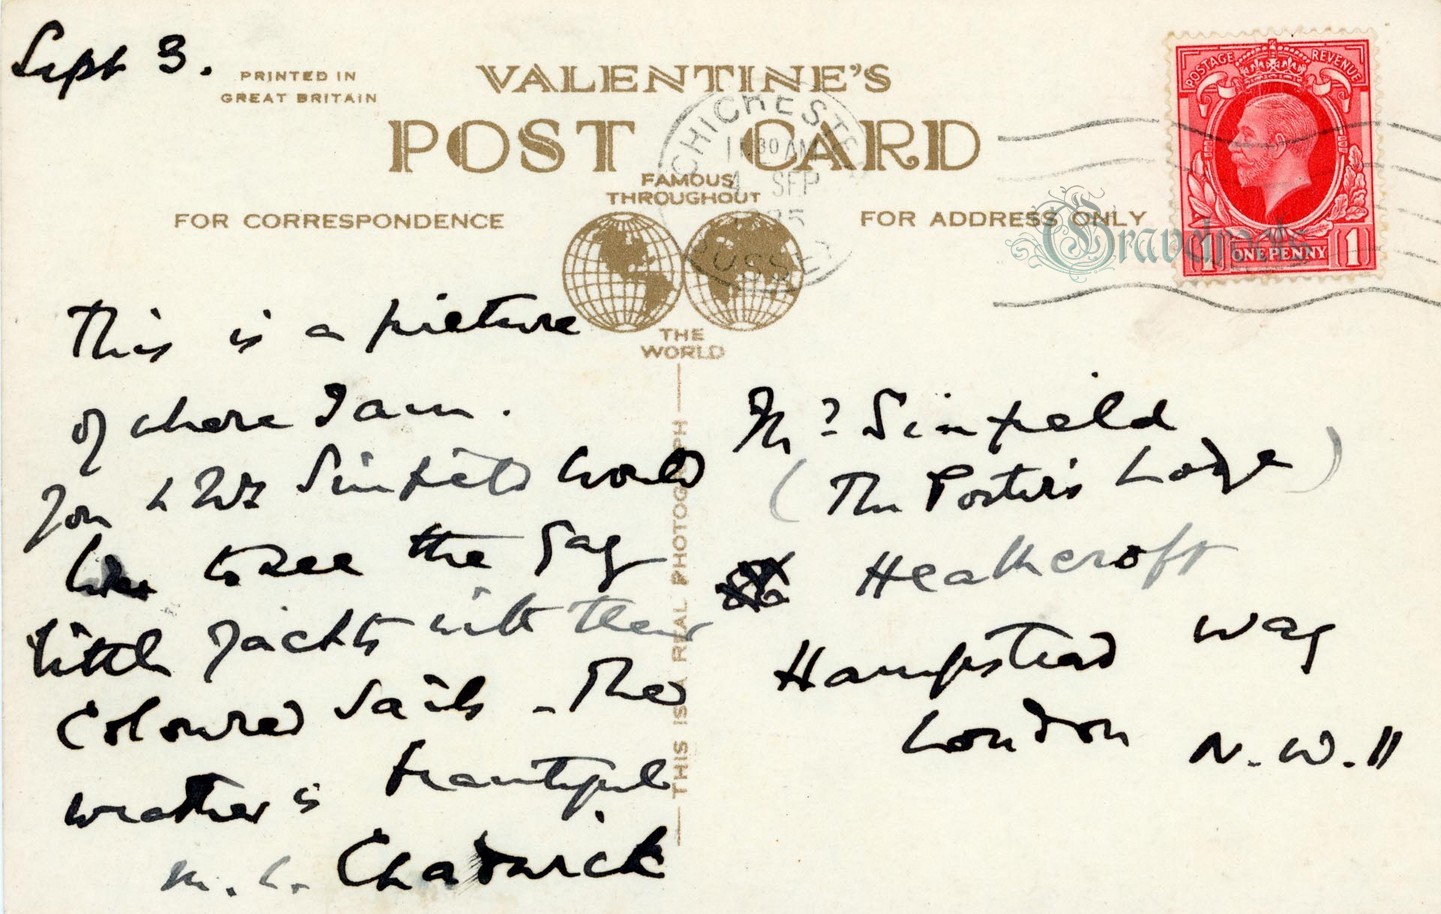 Sept 3.
PRINTED IN
GREAT BRITAIN
VALENTINE'S
POST CARD
FAMOUS
THROUGHOUT
THE
WORLD
FOR CORRESPONDENCE
FOR ADDRESS ONLY
CHICHESTER
11 30 AM
4 SEP
1935
SUSSEX
POSTAGE REVENUE
1 ONE PENNY 1
This is a picture
of where I am.
You & Mrs Sinfield would
like to see the gay
little yachts with their
coloured sails - The
weather is beautiful
M. C. Chadwick
THIS IS A REAL PHOTOGRAPH
Mr Sinfield
(The Porter's Lodge)
Heathcroft
Hampstead Way
London N.W.11